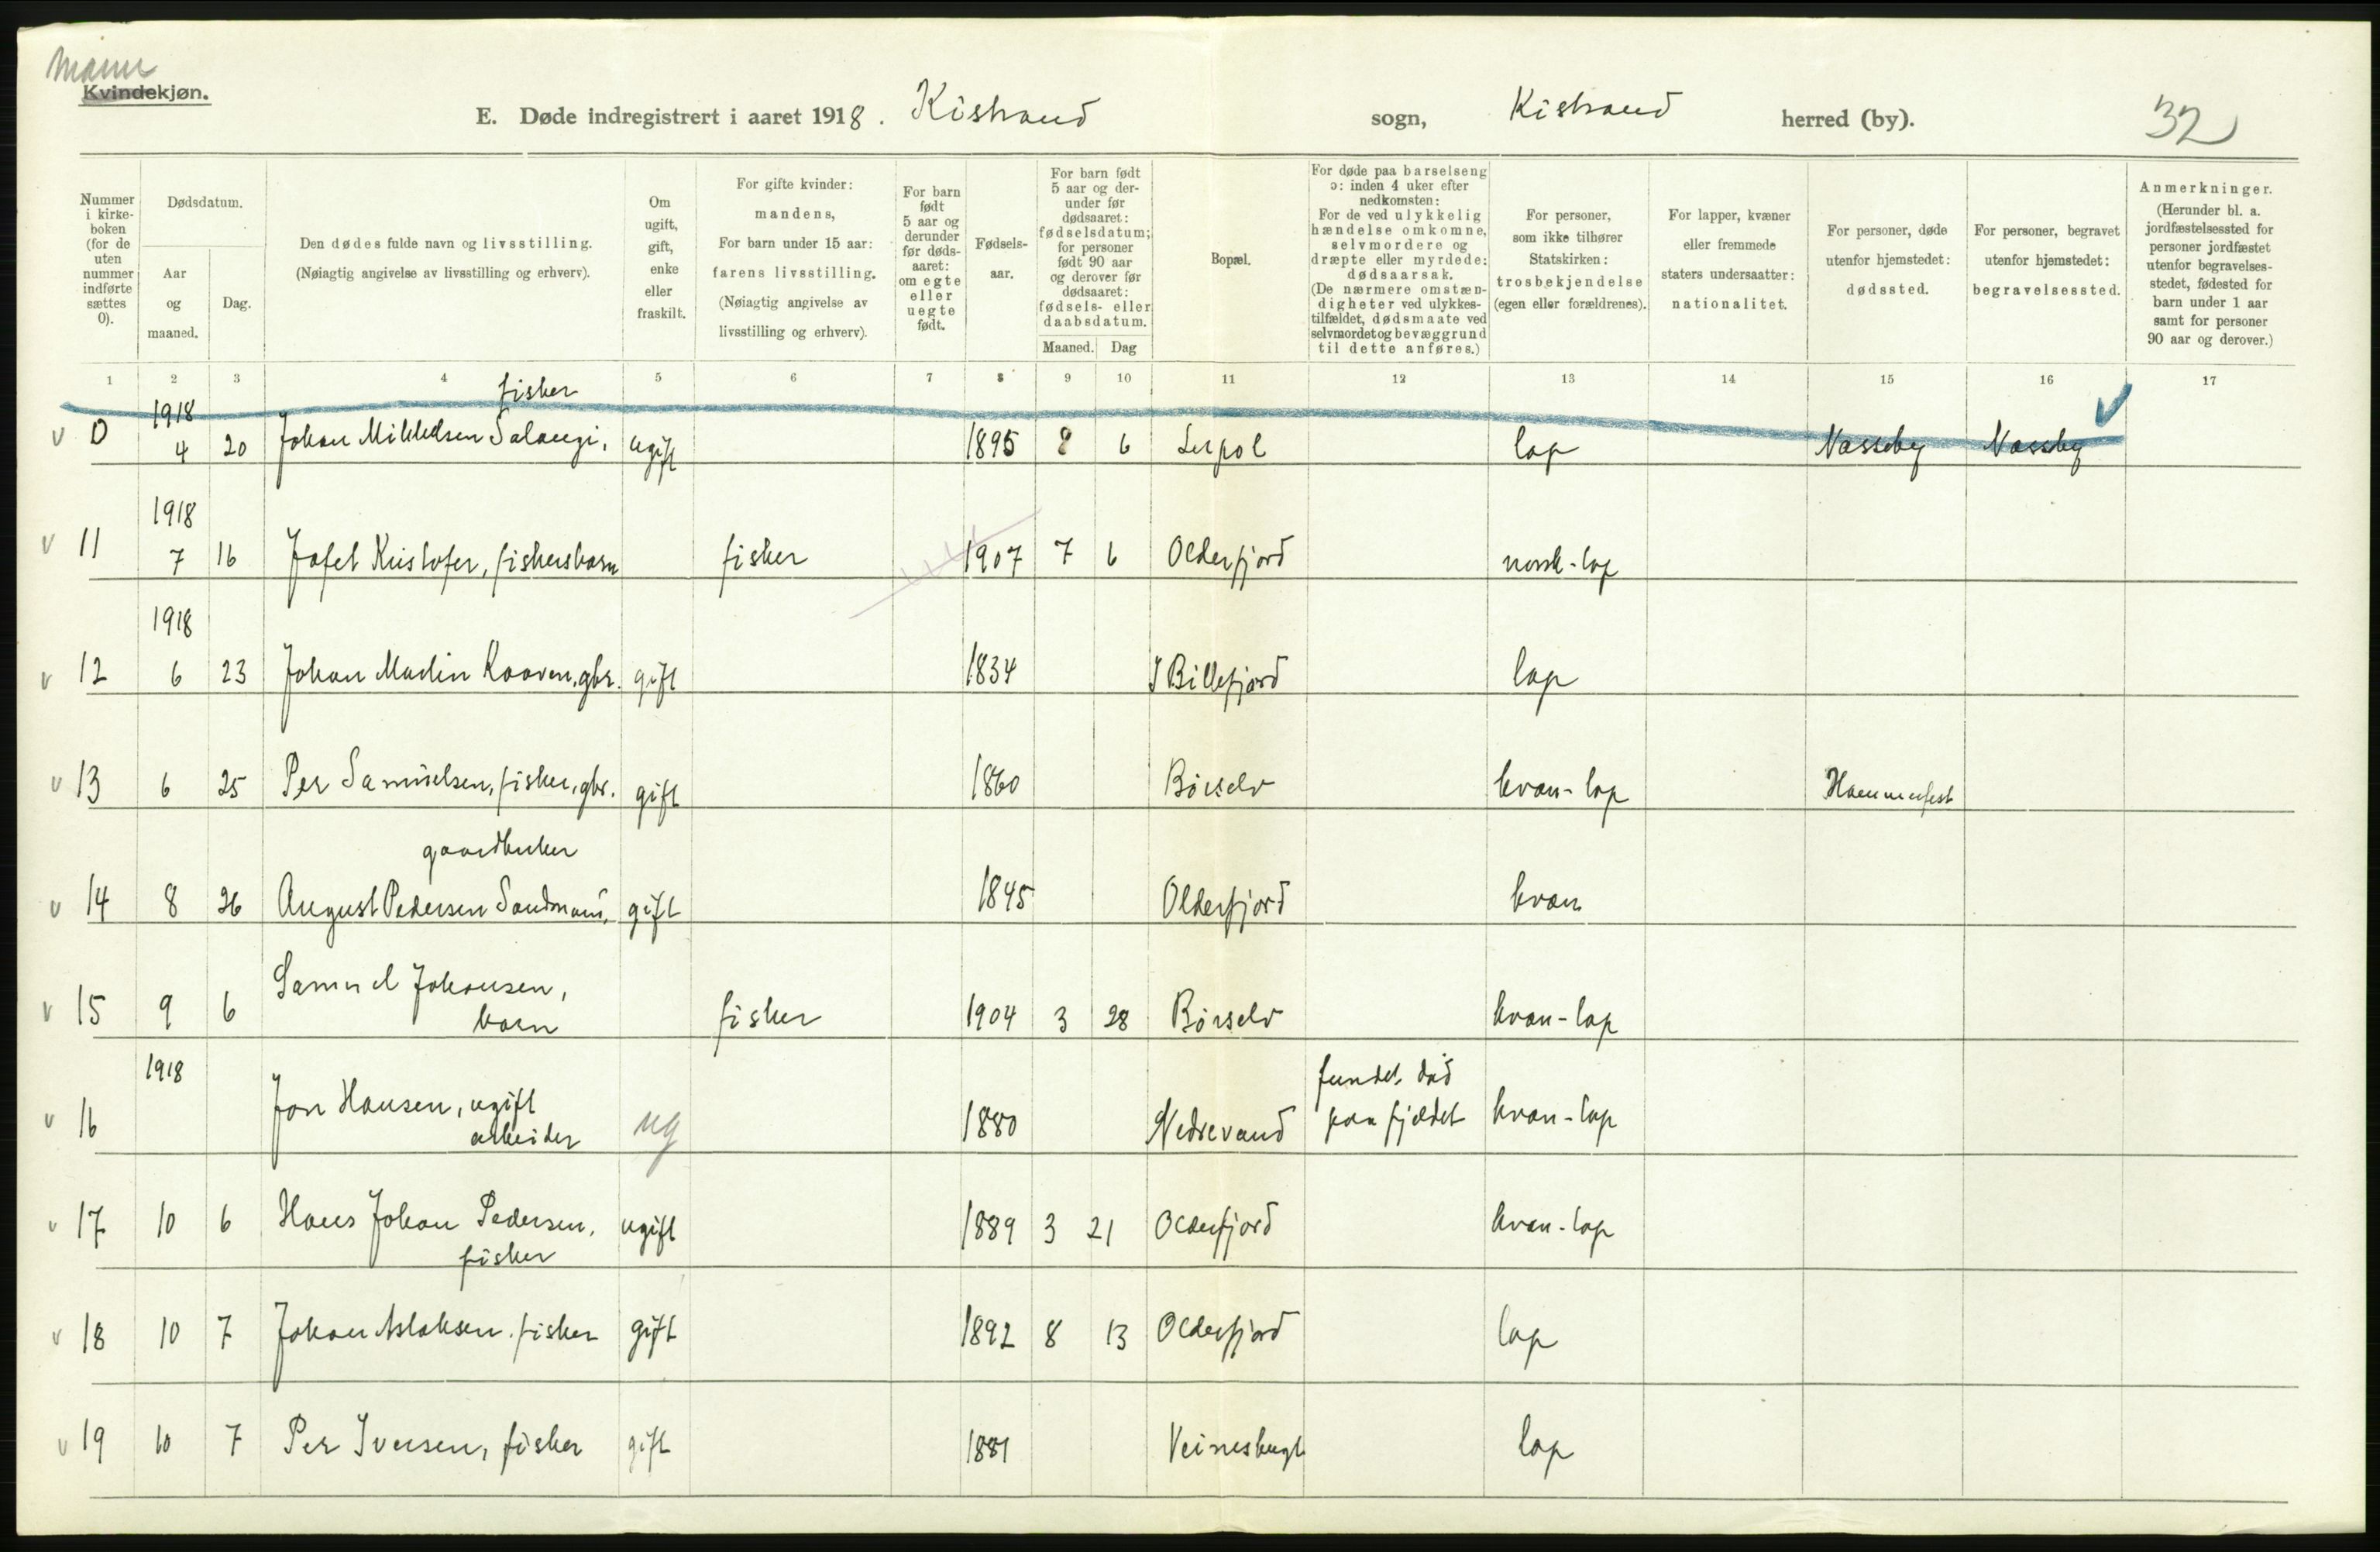 Mann
Kvindekjøn.
E. Døde indregistrert i aaret 1918. Kistrand sogn, Kistrand herred (by). 32
Nummer i kirkeboken (for de uten nummer indførte sættes 0).
Dødsdatum.
Aar og maaned.
Dag.
Den dødes fulde navn og livsstilling.
(Nøiagtig angivelse av livsstilling og erhverv).
Om ugift, gift, enke eller fraskilt.
For gifte kvinder: mandens,
For barn under 15 aar: farens livsstilling.
(Nøiagtig angivelse av livsstilling og erhverv).
For barn født 5 aar og derunder før dødsaaret: om egte eller uegte født.
Fødselsaar.
For barn født 5 aar og derunder før dødsaaret: fødselsdatum; for personer født 90 aar og derover før dødsaaret: fødsels- eller daabsdatum.
Maaned. Dag
Bopæl.
For døde paa barselseng ɔ: inden 4 uker efter nedkomsten:
For de ved ulykkelig hændelse omkomne, selvmordere og dræpte eller myrdede: dødsaarsak.
(De nærmere omstændigheter ved ulykkestilfældet, dødsmaate ved selvmordet og bevæggrund til dette anføres.)
For personer, som ikke tilhører Statskirken: trosbekjendelse (egen eller forældrenes).
For lapper, kvæner eller fremmede staters undersaatter: nationalitet.
For personer, døde utenfor hjemstedet: dødssted.
For personer, begravet utenfor hjemstedet: begravelsessted.
Anmerkninger.
(Herunder bl. a. jordfæstelsessted for personer jordfæstet utenfor begravelsesstedet, fødested for barn under 1 aar samt for personer 90 aar og derover.)
1 2 3 4 5 6 7 8 9 10 11 12 13 14 15 16 17
fisker
1918
v 0 4 20 Johan Mikkelsen Salangi, ugift 1895 8 6 Lerpol lap Næsseby Næsseby
1918
v 11 7 16 Jafet Kristofer, fiskersbarn fisker 1907 7 6 Olderfjord norsk-lap
1918
v 12 6 23 Johan Martin Kaaven, gbr. gift 1834 I Billefjord lap
v 13 6 25 Per Samuelsen, fisker, gbr. gift 1860 Børselv kvæn-lap Hammerfest
gaardbruker
v 14 8 26 August Pedersen Sandmann, gift 1845 Olderfjord kvæn
Samuel Johansen,
v 15 9 6 barn fisker 1904 3 28 Børselv kvæn-lap
1918 fundet død
v 16 Jon Hansen, ugift ug 1880 Nedrevand paa fjeldet kvæn-lap
arbeider
v 17 10 6 Hans Johan Pedersen, ugift 1889 3 21 Olderfjord kvæn-lap
fisker
v 18 10 7 Johan Aslaksen. fisker gift 1892 8 13 Olderfjord lap
v 19 10 7 Per Iversen, fisker gift 1881 Veinesbugt lap